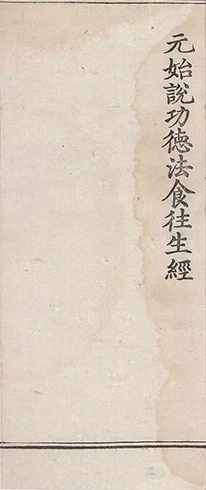 元始說功德法食往生經